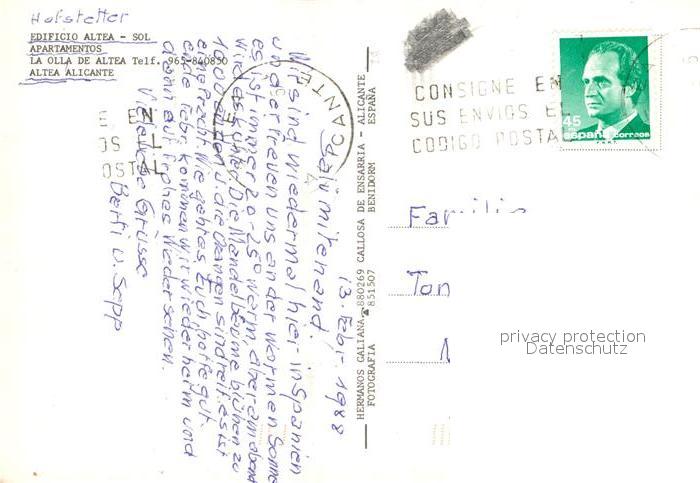 Hofstetter
EDIFICIO ALTEA - SOL
APARTAMENTOS
LA OLLA DE ALTEA Telf. 965-840850
ALTEA ALICANTE
13. Febr. 1988
Salü mitenand.
Wir sind wiedermal hier in Spanien
und erfreuen uns an der warmen Sonne
es ist immer 20-25° warm, aber am abend
wird es kühl. Die Mandelbäume blühen zu
1000enden u. die Orangen sind reif. es ist
eine Pracht. Wie geht es Euch, hoffe gut.
ende Febr. kommen wir wieder heim und
dann auf frohes Wiedersehen.
Viele liebe Grüsse
Berti u. Sepp
HERMANOS GALIANA - 880269 CALLOSA DE ENSARRIA - ALICANTE
FOTOGRAFIA 851507 BENIDORM ESPAÑA
ALICANTE
E EN
OS EL
OSTAL
CONSIGNE EN
SUS ENVIOS EL
CODIGO POSTAL
45
españa correos
Familie
Ton
privacy protection
Datenschutz